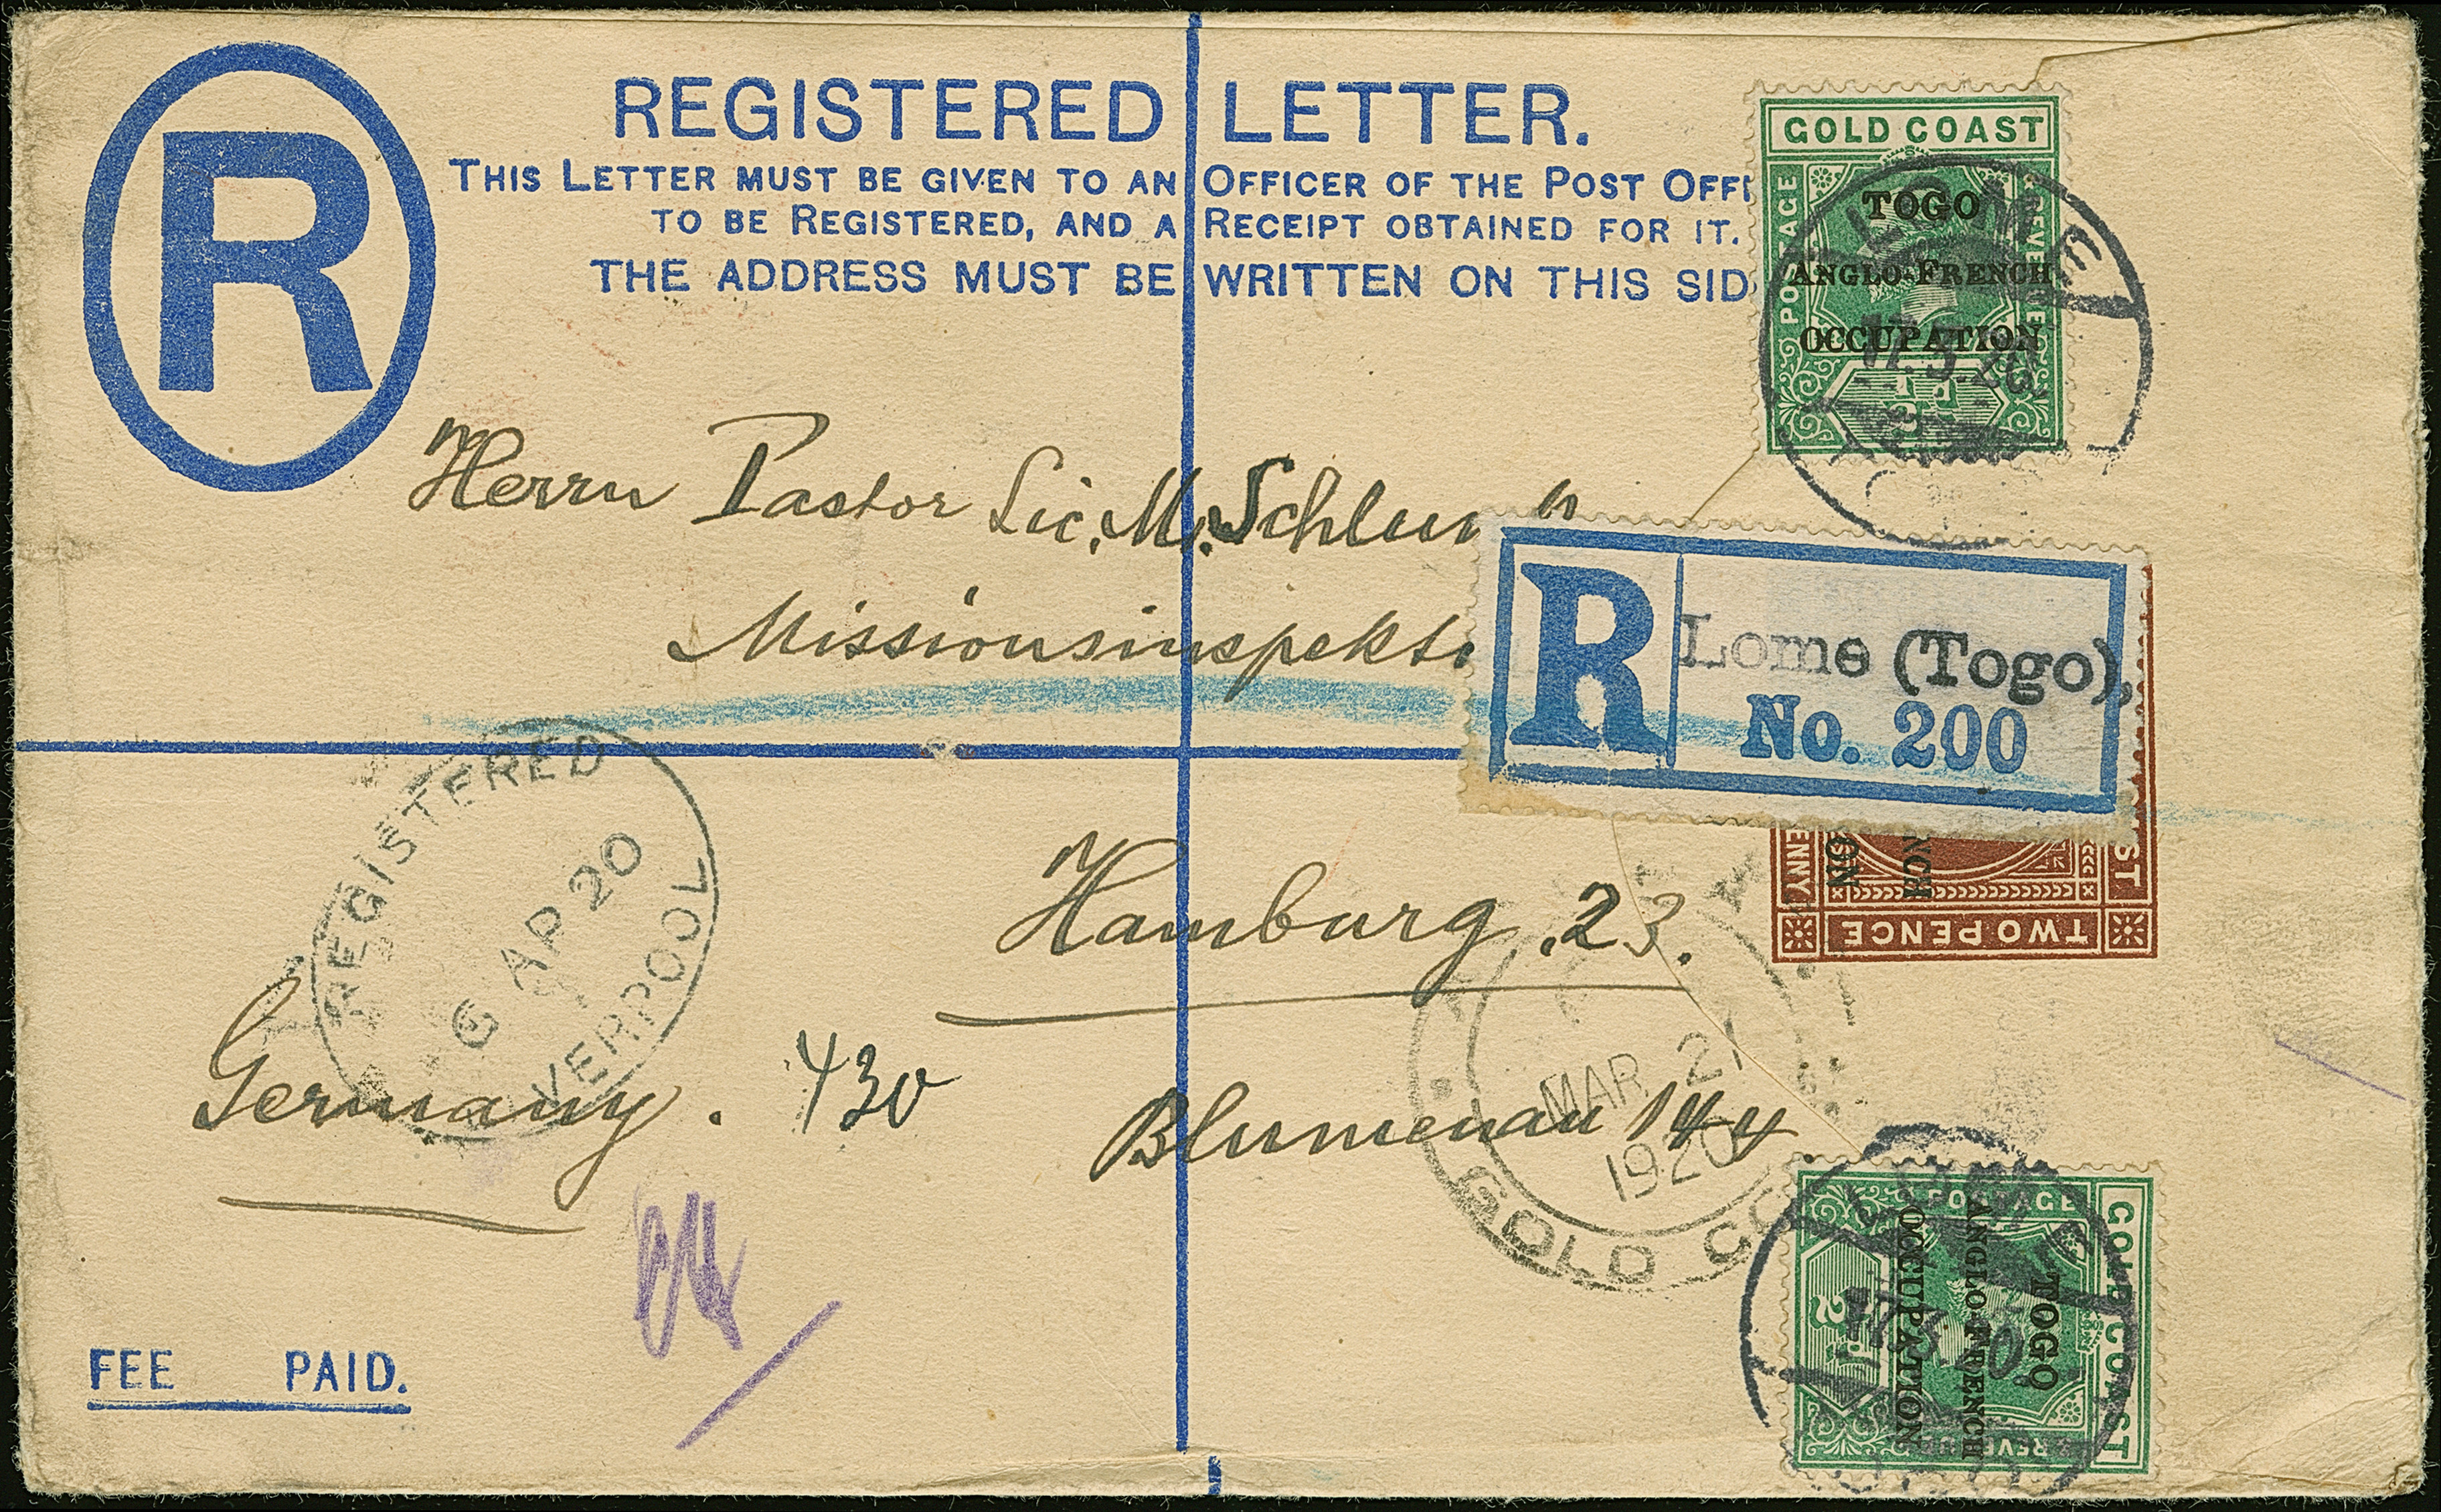 R
REGISTERED LETTER.
THIS LETTER MUST BE GIVEN TO AN OFFICER OF THE POST OFFI
TO BE REGISTERED, AND A RECEIPT OBTAINED FOR IT.
THE ADDRESS MUST BE WRITTEN ON THIS SID
GOLD COAST
POSTAGE
REVENUE
TOGO
ANGLO-FRENCH
OCCUPATION
½d
LOME
17.3.20
Herrn Pastor Lic. M. Schlunk
Missionsinspekt
R
Lome (Togo),
No. 200
ST
NCH
ON
ENNY
TWO PENCE
REGISTERED
6 AP 20
LIVERPOOL
Hamburg. 23.
Germany. 430
Blumenau 144
MAR 21
1920
GOLD CO
GOLD COAST
POSTAGE
& REVENUE
TOGO
ANGLO-FRENCH
OCCUPATION
½d
FEE PAID.